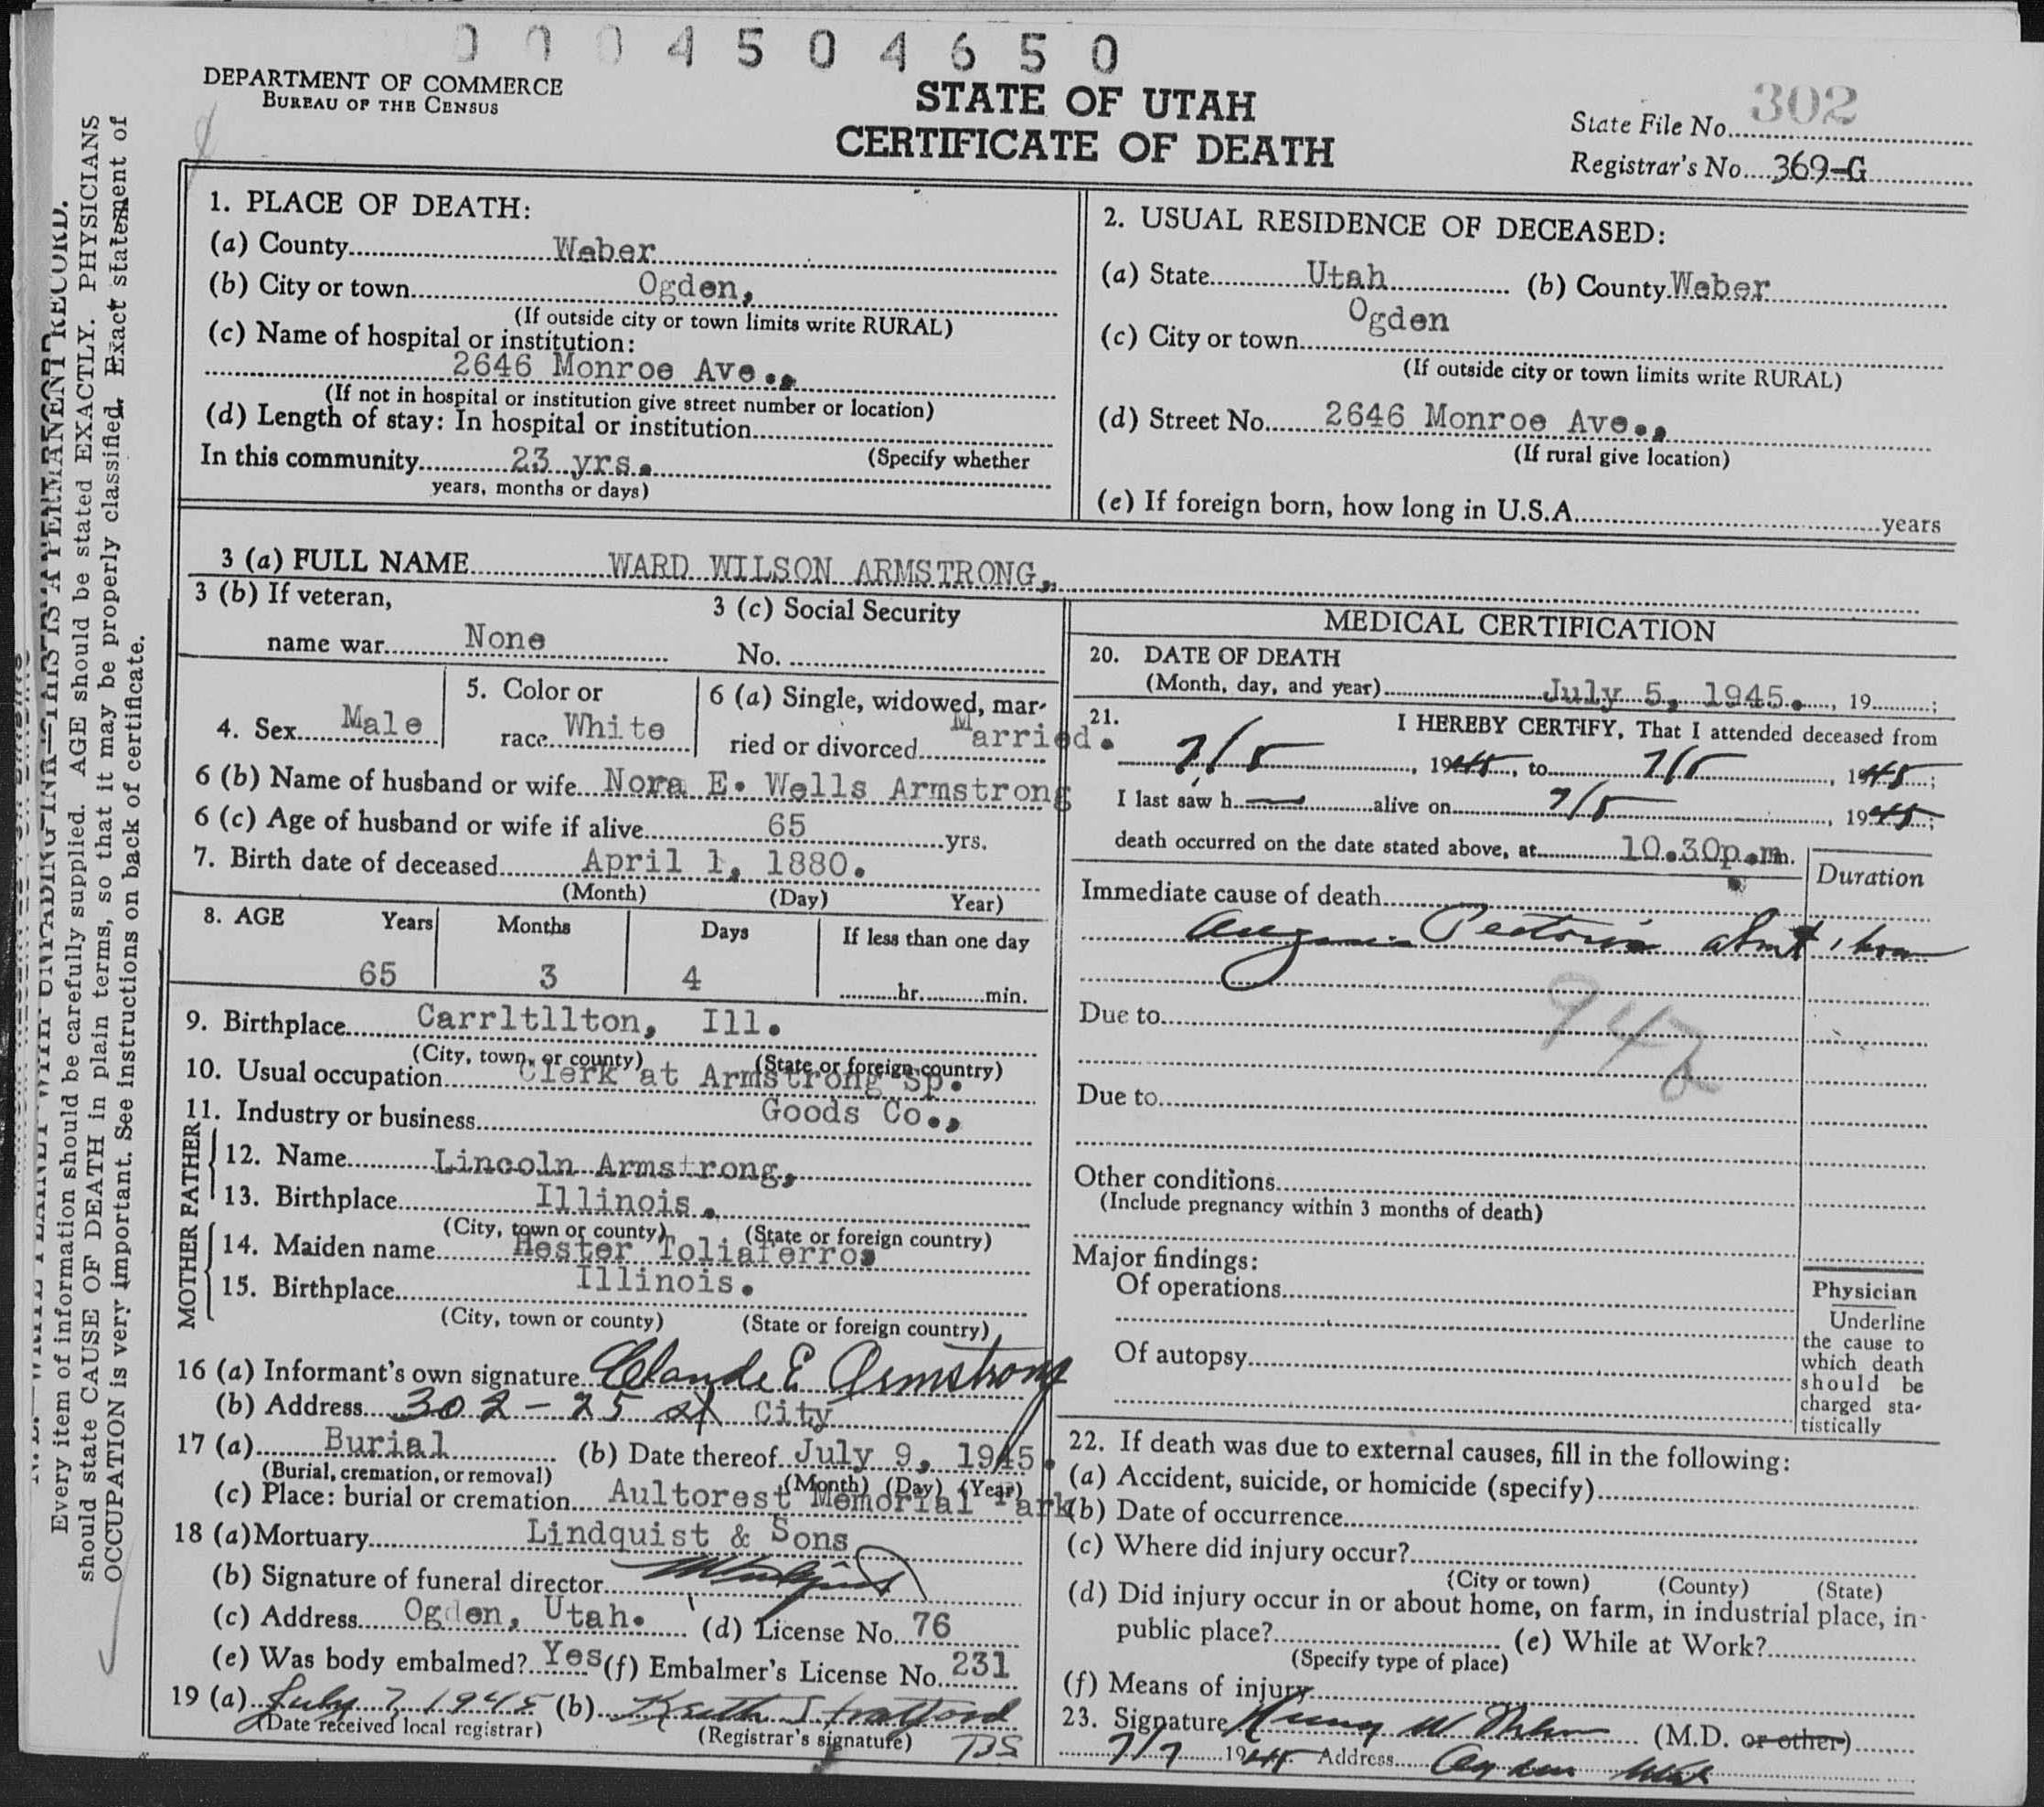 0 0 0 4 5 0 4 6 5 0
DEPARTMENT OF COMMERCE
BUREAU OF THE CENSUS
STATE OF UTAH
CERTIFICATE OF DEATH
State File No. 302
Registrar's No. 369-G
1. PLACE OF DEATH:
(a) County Weber
(b) City or town Ogden,
(If outside city or town limits write RURAL)
(c) Name of hospital or institution:
2646 Monroe Ave.,
(If not in hospital or institution give street number or location)
(d) Length of stay: In hospital or institution
In this community 23 yrs. (Specify whether
years, months or days)
2. USUAL RESIDENCE OF DECEASED:
(a) State Utah (b) County Weber
(c) City or town Ogden
(If outside city or town limits write RURAL)
(d) Street No. 2646 Monroe Ave.,
(If rural give location)
(e) If foreign born, how long in U.S.A. years
3 (a) FULL NAME WARD WILSON ARMSTRONG,
3 (b) If veteran,
name war None
3 (c) Social Security
No.
4. Sex Male
5. Color or
race White
6 (a) Single, widowed, mar-
ried or divorced Married.
6 (b) Name of husband or wife Nora E. Wells Armstrong
6 (c) Age of husband or wife if alive 65 yrs.
7. Birth date of deceased April 1, 1880.
(Month) (Day) Year)
8. AGE Years Months Days If less than one day
65 3 4 hr. min.
9. Birthplace Carrltllton, Ill.
(City, town, or county) (State or foreign country)
10. Usual occupation Clerk at Armstrong Sp.
11. Industry or business Goods Co.,
FATHER
12. Name Lincoln Armstrong,
13. Birthplace Illinois.
(City, town or county) (State or foreign country)
MOTHER
14. Maiden name Hester Toliaferros
15. Birthplace Illinois.
(City, town or county) (State or foreign country)
16 (a) Informant's own signature Claude E Armstrong
(b) Address 302 - 25 st City
17 (a) Burial (b) Date thereof July 9, 1945.
(Burial, cremation, or removal) (Month) (Day) (Year)
(c) Place: burial or cremation Aultorest Memorial Park
18 (a) Mortuary Lindquist & Sons
(b) Signature of funeral director
(c) Address Ogden, Utah. (d) License No. 76
(e) Was body embalmed? Yes (f) Embalmer's License No. 231
19 (a) July 7, 1945 (b) Keith Stratford
(Date received local registrar) (Registrar's signature) BS
MEDICAL CERTIFICATION
20. DATE OF DEATH
(Month, day, and year) July 5, 1945. , 19 ;
21. I HEREBY CERTIFY, That I attended deceased from
7/5 , 1945, to 7/5 , 1945;
I last saw h alive on 7/5 , 1945;
death occurred on the date stated above, at 10.30p.m.
Immediate cause of death Duration
Angina Pectoris about 1 hour
Due to
942
Due to
Other conditions
(Include pregnancy within 3 months of death)
Major findings:
Of operations
Of autopsy
Physician
Underline
the cause to
which death
should be
charged sta-
tistically
22. If death was due to external causes, fill in the following:
(a) Accident, suicide, or homicide (specify)
(b) Date of occurrence
(c) Where did injury occur?
(City or town) (County) (State)
(d) Did injury occur in or about home, on farm, in industrial place, in-
public place? (e) While at Work?
(Specify type of place)
(f) Means of injury
23. Signature (M.D. or other)
7/7 1945 Address Ogden Utah
RECORD.
Every item of information should be carefully supplied. AGE should be stated EXACTLY. PHYSICIANS
should state CAUSE OF DEATH in plain terms, so that it may be properly classified. Exact statement of
OCCUPATION is very important. See instructions on back of certificate.